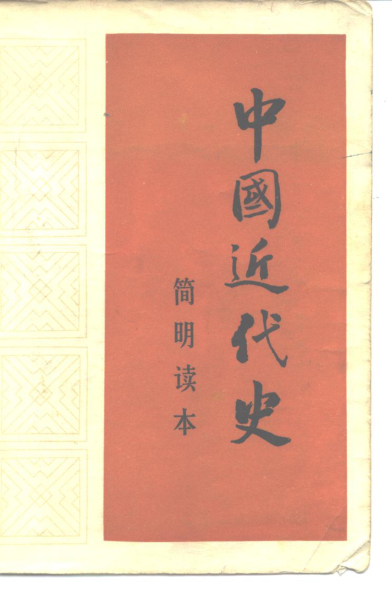 中國近代史
简明读本